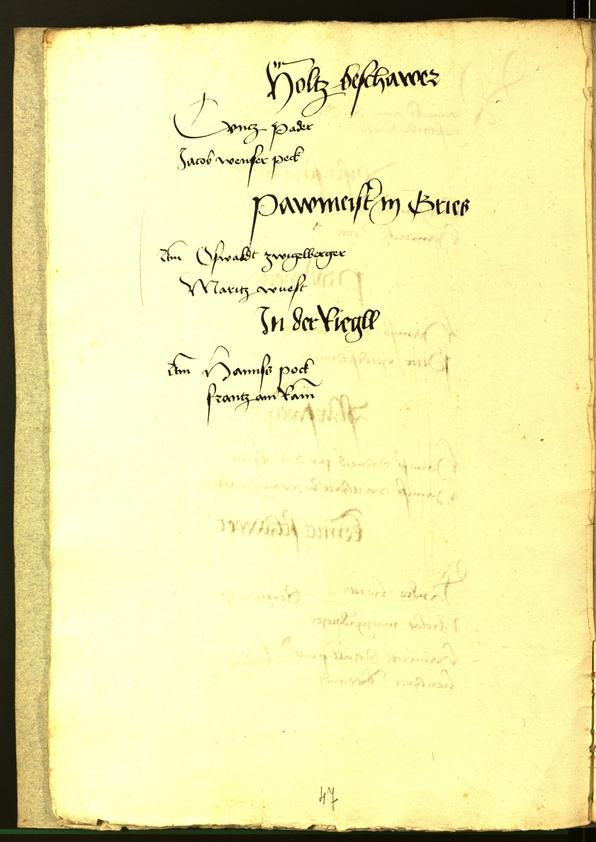 Holtz beschawer
Cuntz Pader
Jacob wenser peck
Pawmeist in Gries
Am Oswaldt zwigelberger
Maritz wuest
In der Riegll
Am Hannss pock
frantz am Rain
47